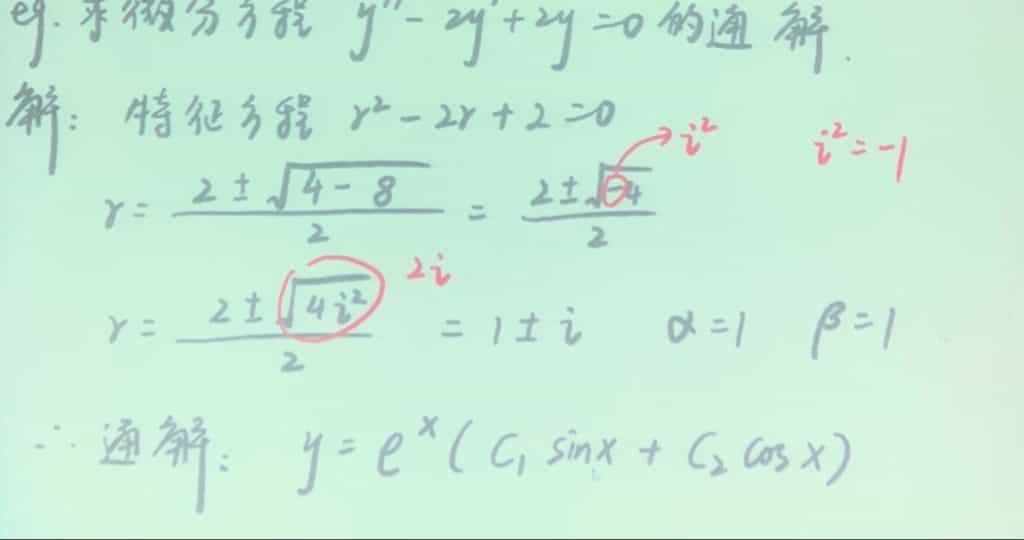 eg. 求微分方程 y''-2y'+2y=0 的通解.
解: 特征方程 r²-2r+2=0
i² i²=-1
r = (2±√(4-8))/2 = (2±√-4)/2
2i
r = (2±√(4i²))/2 = 1±i α=1 β=1
∴ 通解: y=e^x(C₁ sinx + C₂ cosx)